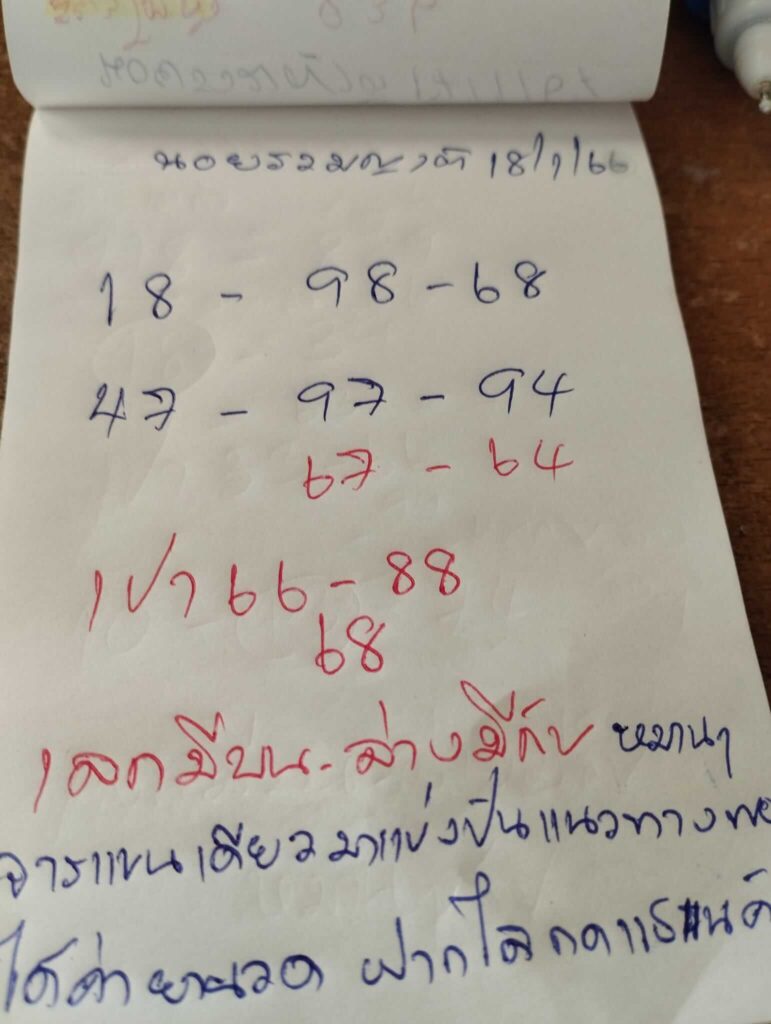 นอยรวมญาติ 18/1/66
18 - 98 - 68
47 - 97 - 94
67 - 64
เปา 66 - 88
68
เลกมีบน - ล่างมีกับ หมานๆ
จารแขนเดียวมาแบ่งปันแนวทาง
ได้ค่ายานวด ฝากไลกดแชร์แนด์